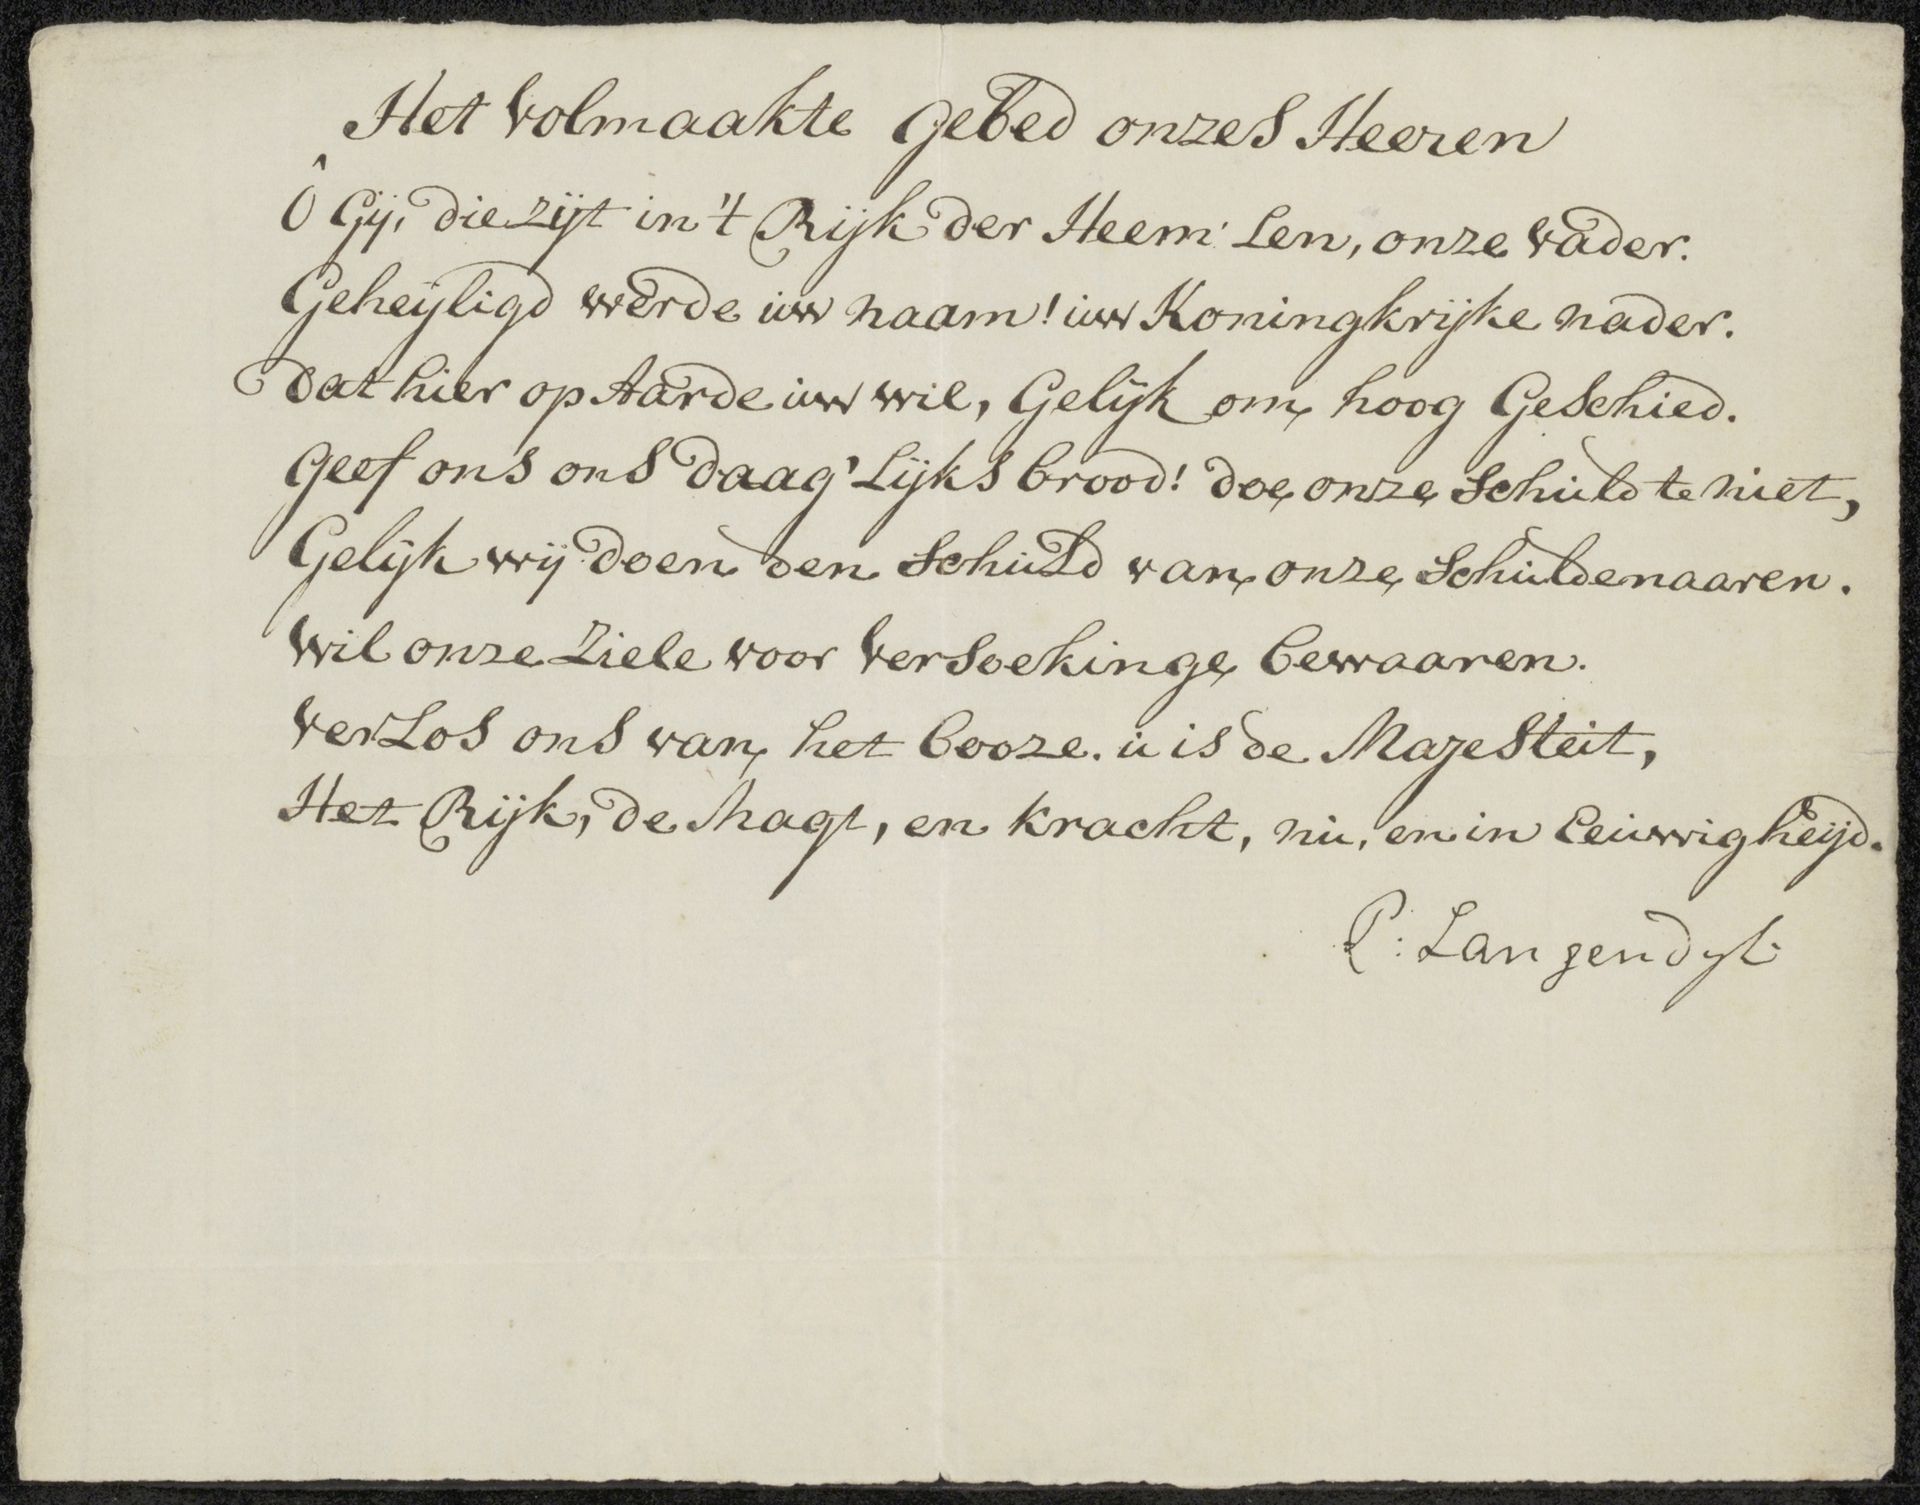 Het volmaakte Gebed onzes Heeren
Ô Gij, die zijt in 't Rijk der Heem'len, onze vader.
Geheyligd werde uw naam! uw Koningkrijke nader.
Dat hier op Aarde uw wil, Gelijk om hoog Geschied.
Geef ons ons daag'lijks brood! doe onze schuld te niet,
Gelijk wij doen den schuld van onze schuldenaaren.
Wil onze Ziele voor versoekinge bewaaren.
Verlos ons van het booze. u is de Majesteit,
Het Rijk, de Magt, en kracht, nu, en in Eeuwigheijd.
P: Langendyk